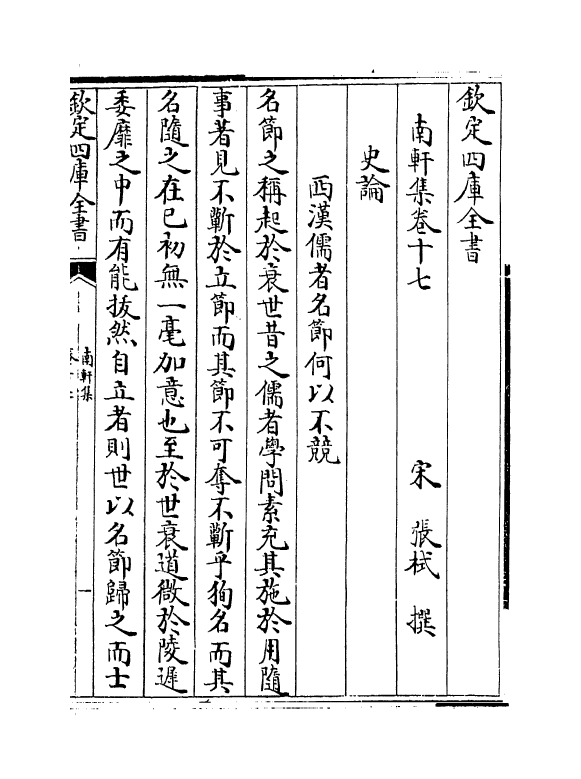 欽定四庫全書
南軒集卷十七
宋 張栻 撰
史論
西漢儒者名節何以不競
名節之稱起於衰世昔之儒者學問素充其施於用隨
事著見不蘄於立節而其節不可奪不蘄乎狥名而其
名隨之在已初無一毫加意也至於世衰道微於陵遲
委靡之中而有能拔然自立者則世以名節歸之而士
欽定四庫全書
南軒集
一